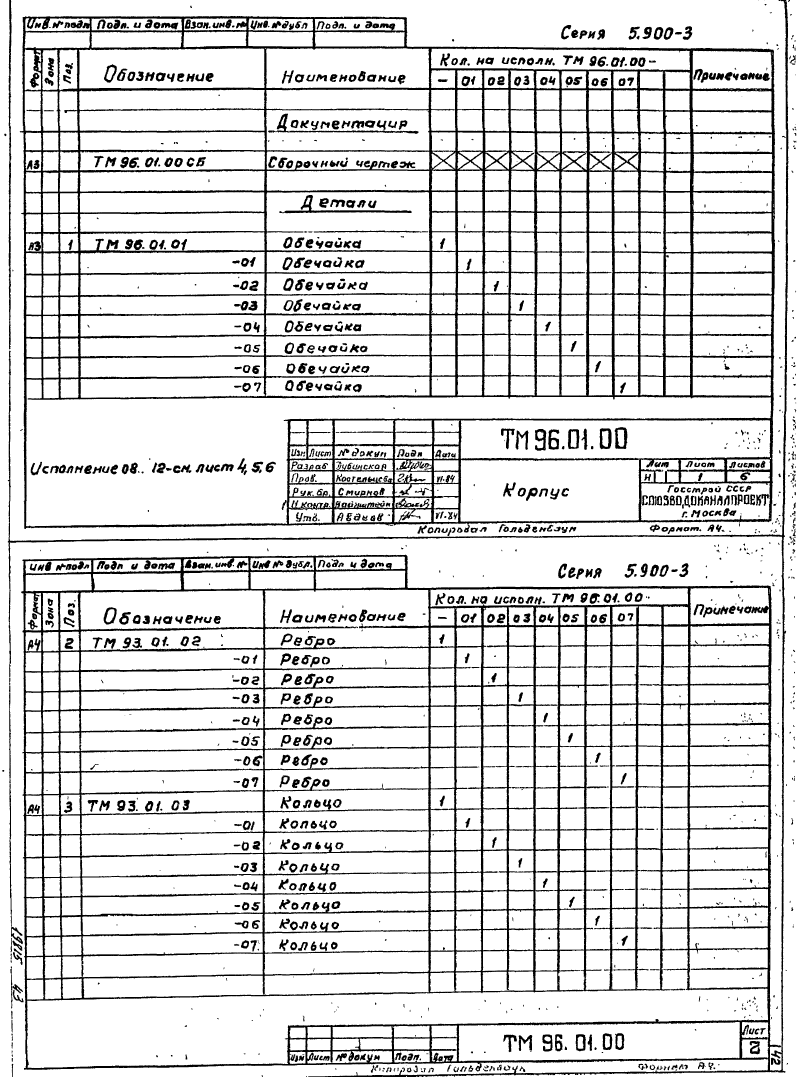 Инв.№подл Подп. и дата Взам.инв.№ Инв.№дубл Подп. и дата
Серия 5.900-3
Формат Зона Поз. Обозначение Наименование Кол. на исполн. ТМ 96.01.00- Примечание
- 01 02 03 04 05 06 07
Документация
А3 ТМ 96.01.00 СБ Сборочный чертеж X X X X X X X X
Детали
А3 1 ТМ 96.01.01 Обечайка 1
-01 Обечайка 1
-02 Обечайка 1
-03 Обечайка 1
-04 Обечайка 1
-05 Обечайка 1
-06 Обечайка 1
-07 Обечайка 1
Исполнение 08.. 12-см. лист 4, 5, 6
ТМ 96.01.00
Изм Лист № докум Подп Дата
Разраб Дубинская
Пров. VI-84
Рук. бр. Смирнов
Н.контр. Вайнштейн
Утв. Авдеев VI-84
Корпус
Лит Лист Листов
И 1 6
Госстрой СССР
СОЮЗВОДОКАНАЛПРОЕКТ
г. Москва
Копировал Гольденбаум Формат А4.
Инв №подл Подп и дата Взам. инв. № Инв № дубл. Подп и дата
Серия 5.900-3
Формат Зона Поз. Обозначение Наименование Кол. на исполн. ТМ 96.01.00- Примечание
- 01 02 03 04 05 06 07
А4 2 ТМ 93. 01. 02 Ребро 1
-01 Ребро 1
-02 Ребро 1
-03 Ребро 1
-04 Ребро 1
-05 Ребро 1
-06 Ребро 1
-07 Ребро 1
А4 3 ТМ 93. 01. 03 Кольцо 1
-01 Кольцо 1
-02 Кольцо 1
-03 Кольцо 1
-04 Кольцо 1
-05 Кольцо 1
-06 Кольцо 1
-07 Кольцо 1
19825 43
Изм Лист № докум Подп. Дата
ТМ 96. 01. 00
Лист
2
42
Копировал Гольденбаум Формат А4.